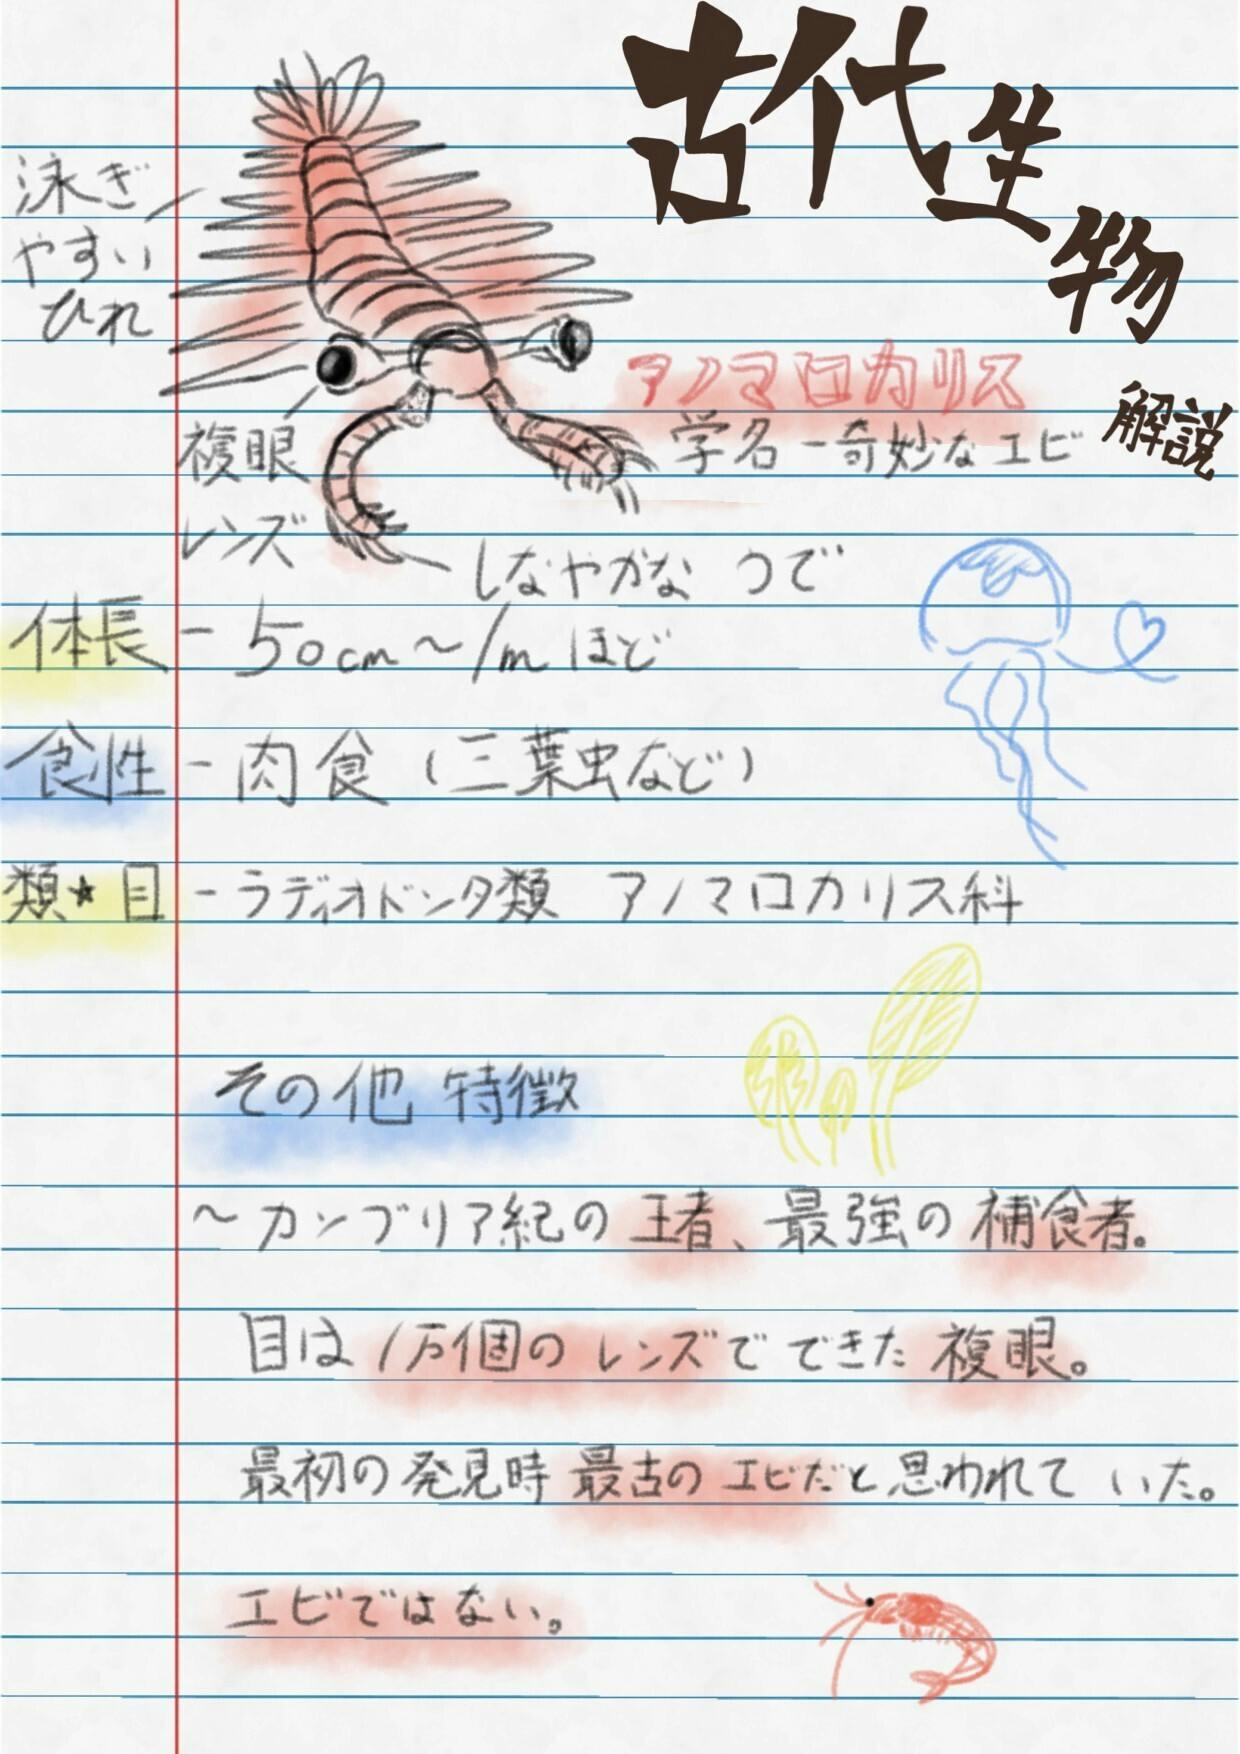 古代生物
解説
泳ぎ
やすい
ひれ
アノマロカリス
学名-奇妙なエビ
複眼
レンズ
しなやかな つで
体長 - 50cm〜1mほど
食性 - 肉食(三葉虫など)
類★目 - ラディオドンタ類 アノマロカリス科
その他 特徴
〜カンブリア紀の王者、最強の補食者。
目は1万個のレンズで できた 複眼。
最初の発見時 最古のエビだと思われて いた。
エビではない。